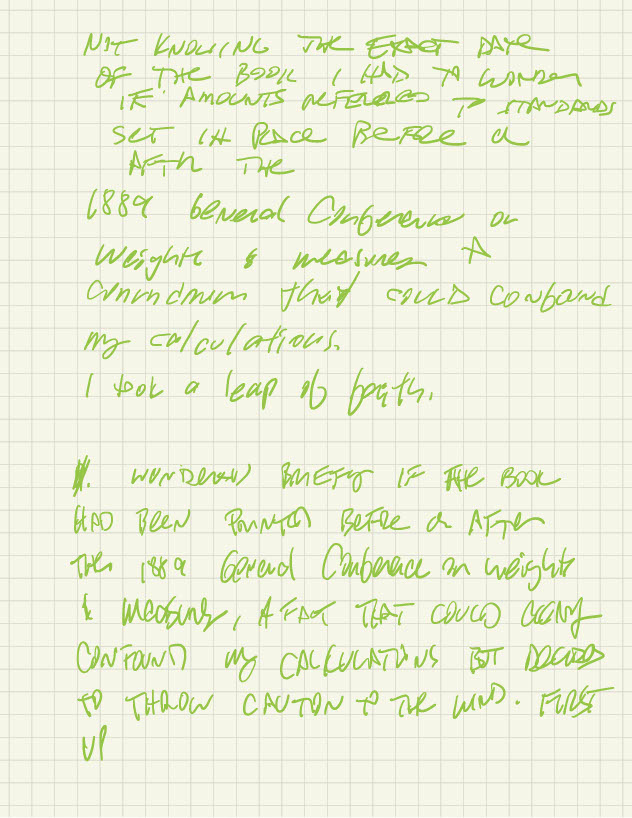 NOT KNOWING THE EXACT DATE
OF THE BOOK I HAD TO WONDER
IF AMOUNTS REFERRED TO STANDARDS
SET IN PLACE BEFORE OR
AFTER THE
1889 General Conference on
Weights & measures A
conundrum that could confound
my calculations.
I took a leap of faith.
I. WONDERED BRIEFLY IF THE BOOK
HAD BEEN PRINTED BEFORE OR AFTER
THE 1889 General Conference on weights
& Measures, A FACT THAT COULD
CONFOUND my CALCULATIONS BUT DECIDED
TO THROW CAUTION TO THE WIND. FIRST
UP